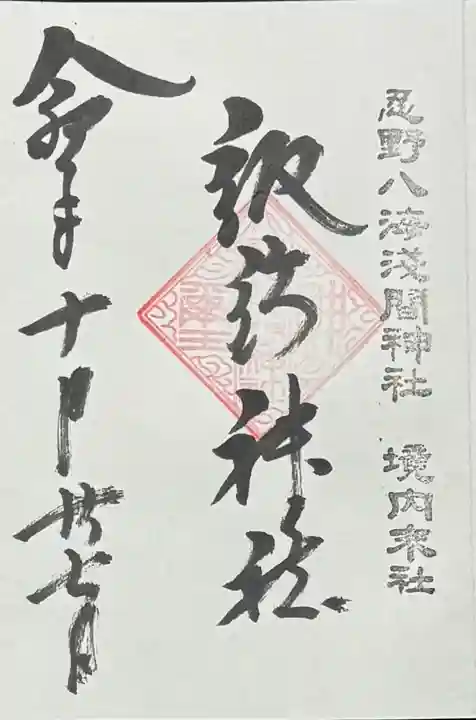 忍野八海淺間神社 境内末社
諏訪神社
令和二年十月廿七日